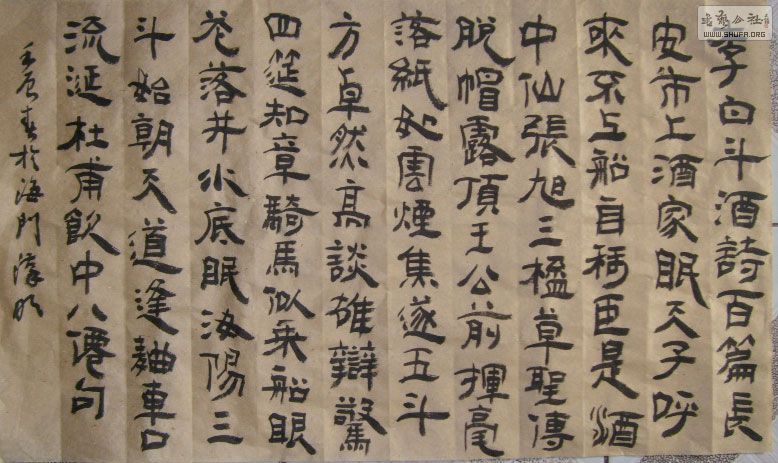 李白斗酒詩百篇長
安市上酒家眠天子呼
來不上船自稱臣是酒
中仙張旭三楹草聖傳
脫帽露頂王公前揮毫
落紙如雲煙集遂五斗
方卓然高談雄辯驚
四筵知章騎馬似乘船眼
花落井水底眠汝陽三
斗始朝天道逢麯車口
流涎杜甫飲中八僊句
壬辰春於海門
WWW.SHUFA.ORG